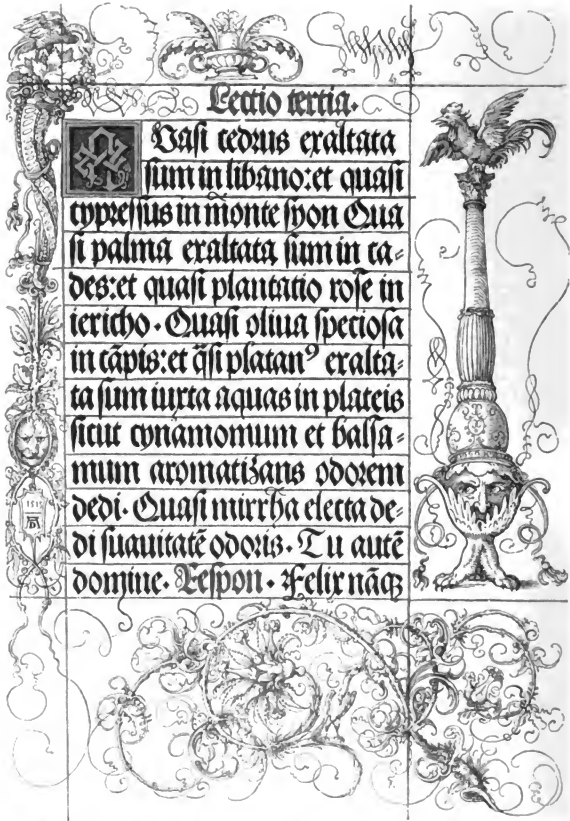 Lectio tertia.
QVasi cedrus exaltata
sum in libano: et quasi
cypressus in monte syon Qua
si palma exaltata sum in ca-
des: et quasi plantatio rose in
iericho. Quasi oliua speciosa
in cāpis: et q̄si platanꝰ exalta-
ta sum iuxta aquas in plateis
sicut cynamomum et balsa-
mum aromatizans odorem
dedi. Quasi mirrha electa de-
di suauitatē odoris. Tu autē
domine. Respon. Felix nāqꝫ
1515
AD